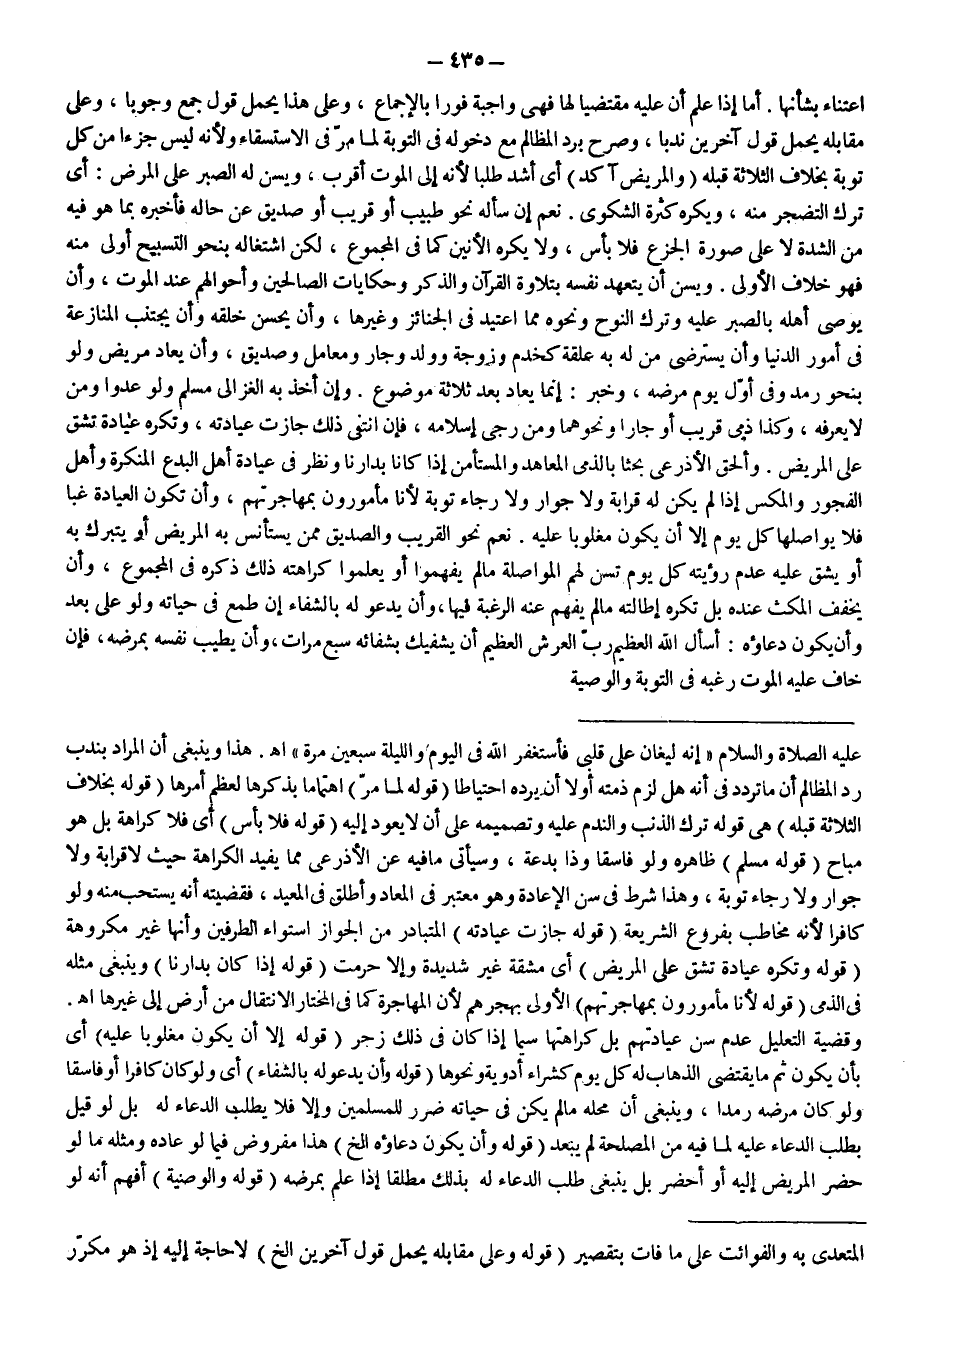 – ٤٣٥ –
اعتناء بشأنها . أما إذا علم أن عليه مقتضيا لها فهى واجبة فورا بالإجماع ، وعلى هذا يحمل قول جمع وجوبا ، وعلى
مقابله يحمل قول آخرين ندبا ، وصرح برد المظالم مع دخوله فى التوبة لما مرّ فى الاستسقاء ولأنه ليس جزءا من كل
توبة بخلاف الثلاثة قبله ( والمريض آكد ) أى أشد طلبا لأنه إلى الموت أقرب ، ويسن له الصبر على المرض : أى
ترك التضجر منه ، ويكره كثرة الشكوى . نعم إن سأله نحو طبيب أو قريب أو صديق عن حاله فأخبره بما هو فيه
من الشدة لا على صورة الجزع فلا بأس ، ولا يكره الأنين كما فى المجموع ، لكن اشتغاله بنحو التسبيح أولى منه
فهو خلاف الأولى . ويسن أن يتعهد نفسه بتلاوة القرآن والذكر وحكايات الصالحين وأحوالهم عند الموت ، وأن
يوصى أهله بالصبر عليه وترك النوح ونحوه مما اعتيد فى الجنائز وغيرها ، وأن يحسن خلقه وأن يجتنب المنازعة
فى أمور الدنيا وأن يسترضى من له به علقة كخدم وزوجة وولد وجار ومعامل وصديق ، وأن يعاد مريض ولو
بنحو رمد وفى أوّل يوم مرضه ، وخبر : إنما يعاد بعد ثلاثة موضوع . وإن أخذ به الغزالى مسلم ولو عدوا ومن
لايعرفه ، وكذا ذمى قريب أو جارا ونحوهما ومن رجى إسلامه ، فإن انتفى ذلك جازت عيادته ، وتكره عيادة تشق
على المريض . وألحق الأذرعى بحثا بالذمى المعاهد والمستأمن إذا كانا بدارنا ونظر فى عيادة أهل البدع المنكرة وأهل
الفجور والمكس إذا لم يكن له قرابة ولا جوار ولا رجاء توبة لأنا مأمورون بمهاجرتهم ، وأن تكون العيادة غبا
فلا يواصلها كل يوم إلا أن يكون مغلوبا عليه . نعم نحو القريب والصديق ممن يستأنس به المريض أو يتبرك به
أو يشق عليه عدم رؤيته كل يوم تسن لهم المواصلة مالم يفهموا أو يعلموا كراهته ذلك ذكره فى المجموع ، وأن
يخفف المكث عنده بل تكره إطالته مالم يفهم عنه الرغبة فيها ، وأن يدعو له بالشفاء إن طمع فى حياته ولو على بعد
وأن يكون دعاؤه : أسأل الله العظيم ربّ العرش العظيم أن يشفيك بشفائه سبع مرات ، وأن يطيب نفسه بمرضه ، فإن
خاف عليه الموت رغبه فى التوبة والوصية
عليه الصلاة والسلام « إنه ليغان على قلبى فأستغفر الله فى اليوم والليلة سبعين مرة » اهـ . هذا وينبغى أن المراد بندب
رد المظالم أن ماتردد فى أنه هل لزم ذمته أولا أن يرده احتياطا ( قوله لما مرّ ) اهتماما بذكرها لعظم أمرها ( قوله بخلاف
الثلاثة قبله ) هى قوله ترك الذنب والندم عليه وتصميمه على أن لايعود إليه ( قوله فلا بأس ) أى فلا كراهة بل هو
مباح ( قوله مسلم ) ظاهره ولو فاسقا وذا بدعة ، وسيأتى مافيه عن الأذرعى مما يفيد الكراهة حيث لاقرابة ولا
جوار ولا رجاء توبة ، وهذا شرط فى سن الإعادة وهو معتبر فى المعاد وأطلق فى المعيد ، فقضيته أنه يستحب منه ولو
كافرا لأنه مخاطب بفروع الشريعة ( قوله جازت عيادته ) المتبادر من الجواز استواء الطرفين وأنها غير مكروهة
( قوله وتكره عيادة تشق على المريض ) أى مشقة غير شديدة وإلا حرمت ( قوله إذا كان بدارنا ) وينبغى مثله
فى الذمى ( قوله لأنا مأمورون بمهاجرتهم ) الأولى بهجرهم لأن المهاجرة كما فى المختار الانتقال من أرض إلى غيرها اهـ .
وقضية التعليل عدم سن عيادتهم بل كراهتها سيما إذا كان فى ذلك زجر ( قوله إلا أن يكون مغلوبا عليه ) أى
بأن يكون ثم مايقتضى الذهاب له كل يوم كشراء أدوية ونحوها ( قوله وأن يدعو له بالشفاء ) أى ولو كان كافرا أو فاسقا
ولو كان مرضه رمدا ، وينبغى أن محله مالم يكن فى حياته ضرر للمسلمين وإلا فلا يطلب الدعاء له بل لو قيل
بطلب الدعاء عليه لما فيه من المصلحة لم يبعد ( قوله وأن يكون دعاؤه الخ ) هذا مفروض فيما لو عاده ومثله ما لو
حضر المريض إليه أو أحضر بل ينبغى طلب الدعاء له بذلك مطلقا إذا علم بمرضه ( قوله والوصية ) أفهم أنه لو
المتعدى به والفوائت على ما فات بتقصير ( قوله وعلى مقابله يحمل قول آخرين الخ ) لاحاجة إليه إذ هو مكرّر